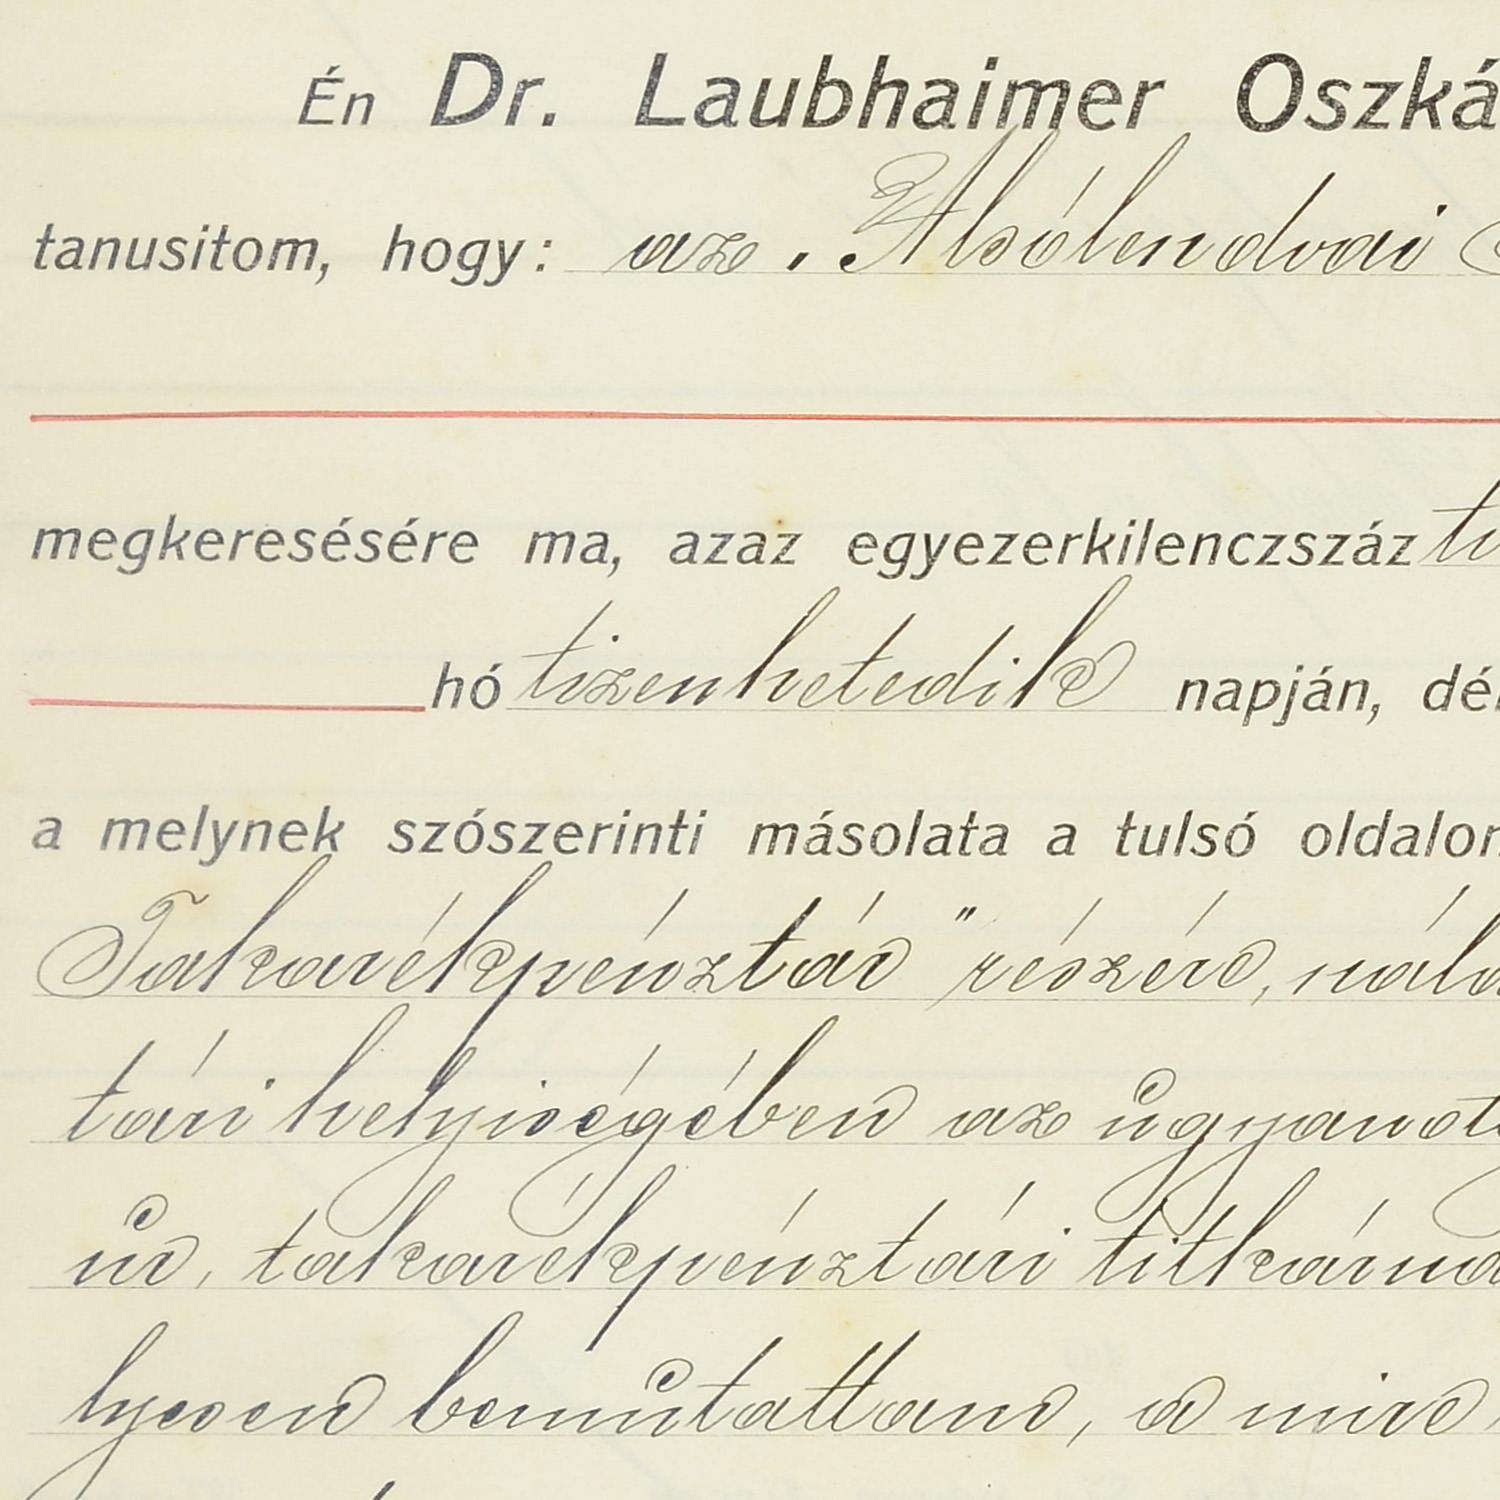 Én Dr. Laubhaimer Oszká
tanusitom, hogy: az „Alsólendvai
megkeresésére ma, azaz egyezerkilenczszáz ti
hó tizenhetedik napján, dél
a melynek szószerinti másolata a tulsó oldalon
Takarékpénztár" részére, nála
tári helyiségében az ugyanott
ur, takarékpénztári titkárna
lyesen bemutattam, a mire